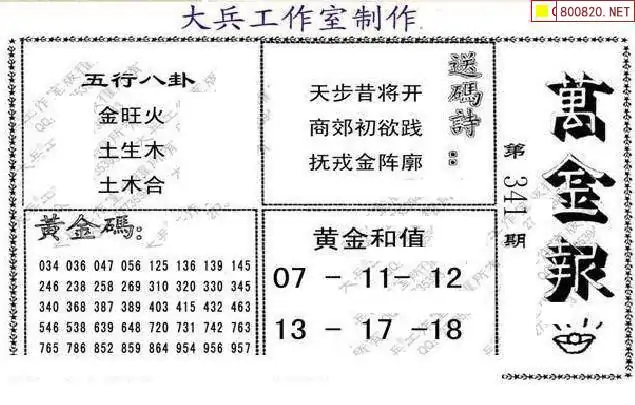 大兵工作室制作
C800820.NET
五行八卦
金旺火
土生木
土木合
送碼詩：
天步昔将开
商郊初欲践
抚戎金阵廓
萬金报
第341期
黃金碼：
034 036 047 056 125 136 139 145
246 238 258 269 310 320 330 345
340 368 387 389 403 415 432 463
546 538 639 648 720 731 742 763
765 786 852 859 864 954 956 957
黄金和值
07 - 11- 12
13 - 17 -18